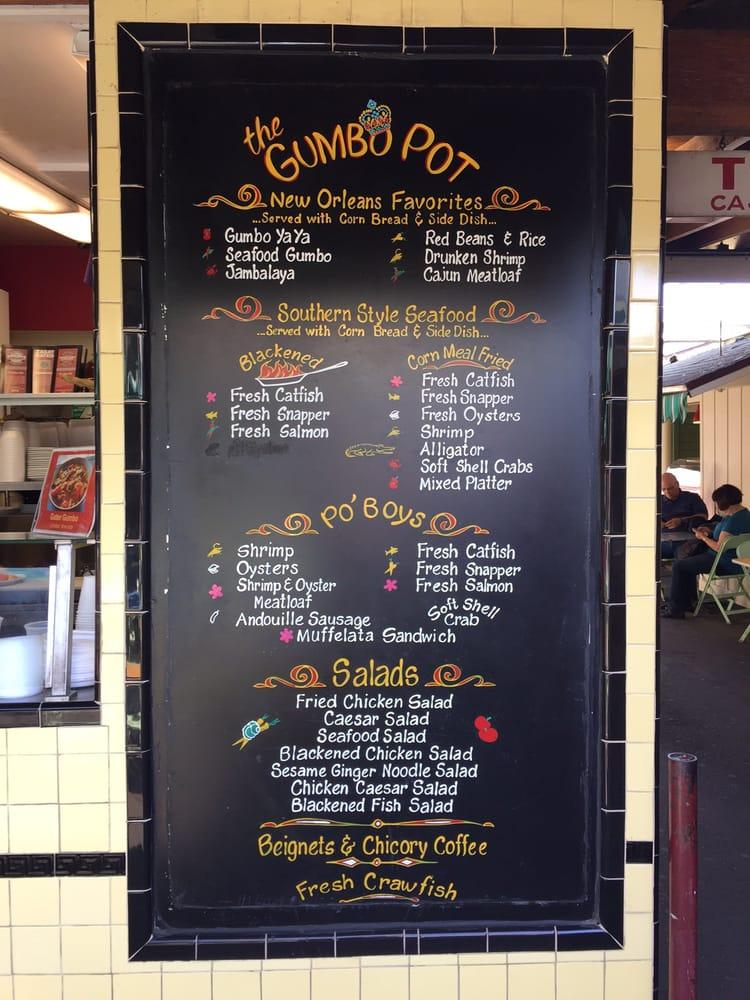 the GUMBO POT
New Orleans Favorites
...Served with Corn Bread & Side Dish...
Gumbo YaYa
Seafood Gumbo
Jambalaya
Red Beans & Rice
Drunken Shrimp
Cajun Meatloaf
Southern Style Seafood
...Served with Corn Bread & Side Dish...
Blackened
Fresh Catfish
Fresh Snapper
Fresh Salmon
Corn Meal Fried
Fresh Catfish
Fresh Snapper
Fresh Oysters
Shrimp
Alligator
Soft Shell Crabs
Mixed Platter
Po' Boys
Shrimp
Oysters
Shrimp & Oyster
Meatloaf
Andouille Sausage
Fresh Catfish
Fresh Snapper
Fresh Salmon
Soft Shell
Crab
Muffelata Sandwich
Salads
Fried Chicken Salad
Caesar Salad
Seafood Salad
Blackened Chicken Salad
Sesame Ginger Noodle Salad
Chicken Caesar Salad
Blackened Fish Salad
Beignets & Chicory Coffee
Fresh Crawfish
Gator Gumbo
T
CA